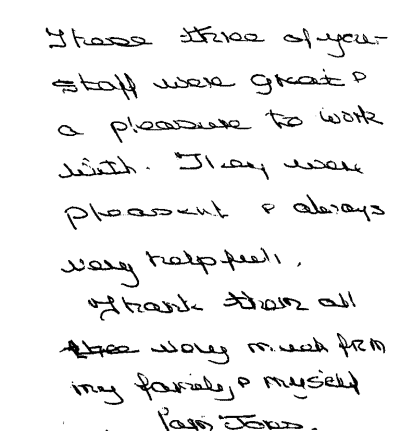 These three of your
staff were great &
a pleasure to work
with. They were
pleasant & always
very helpfull,
Thank them all
very much from
my family & myself